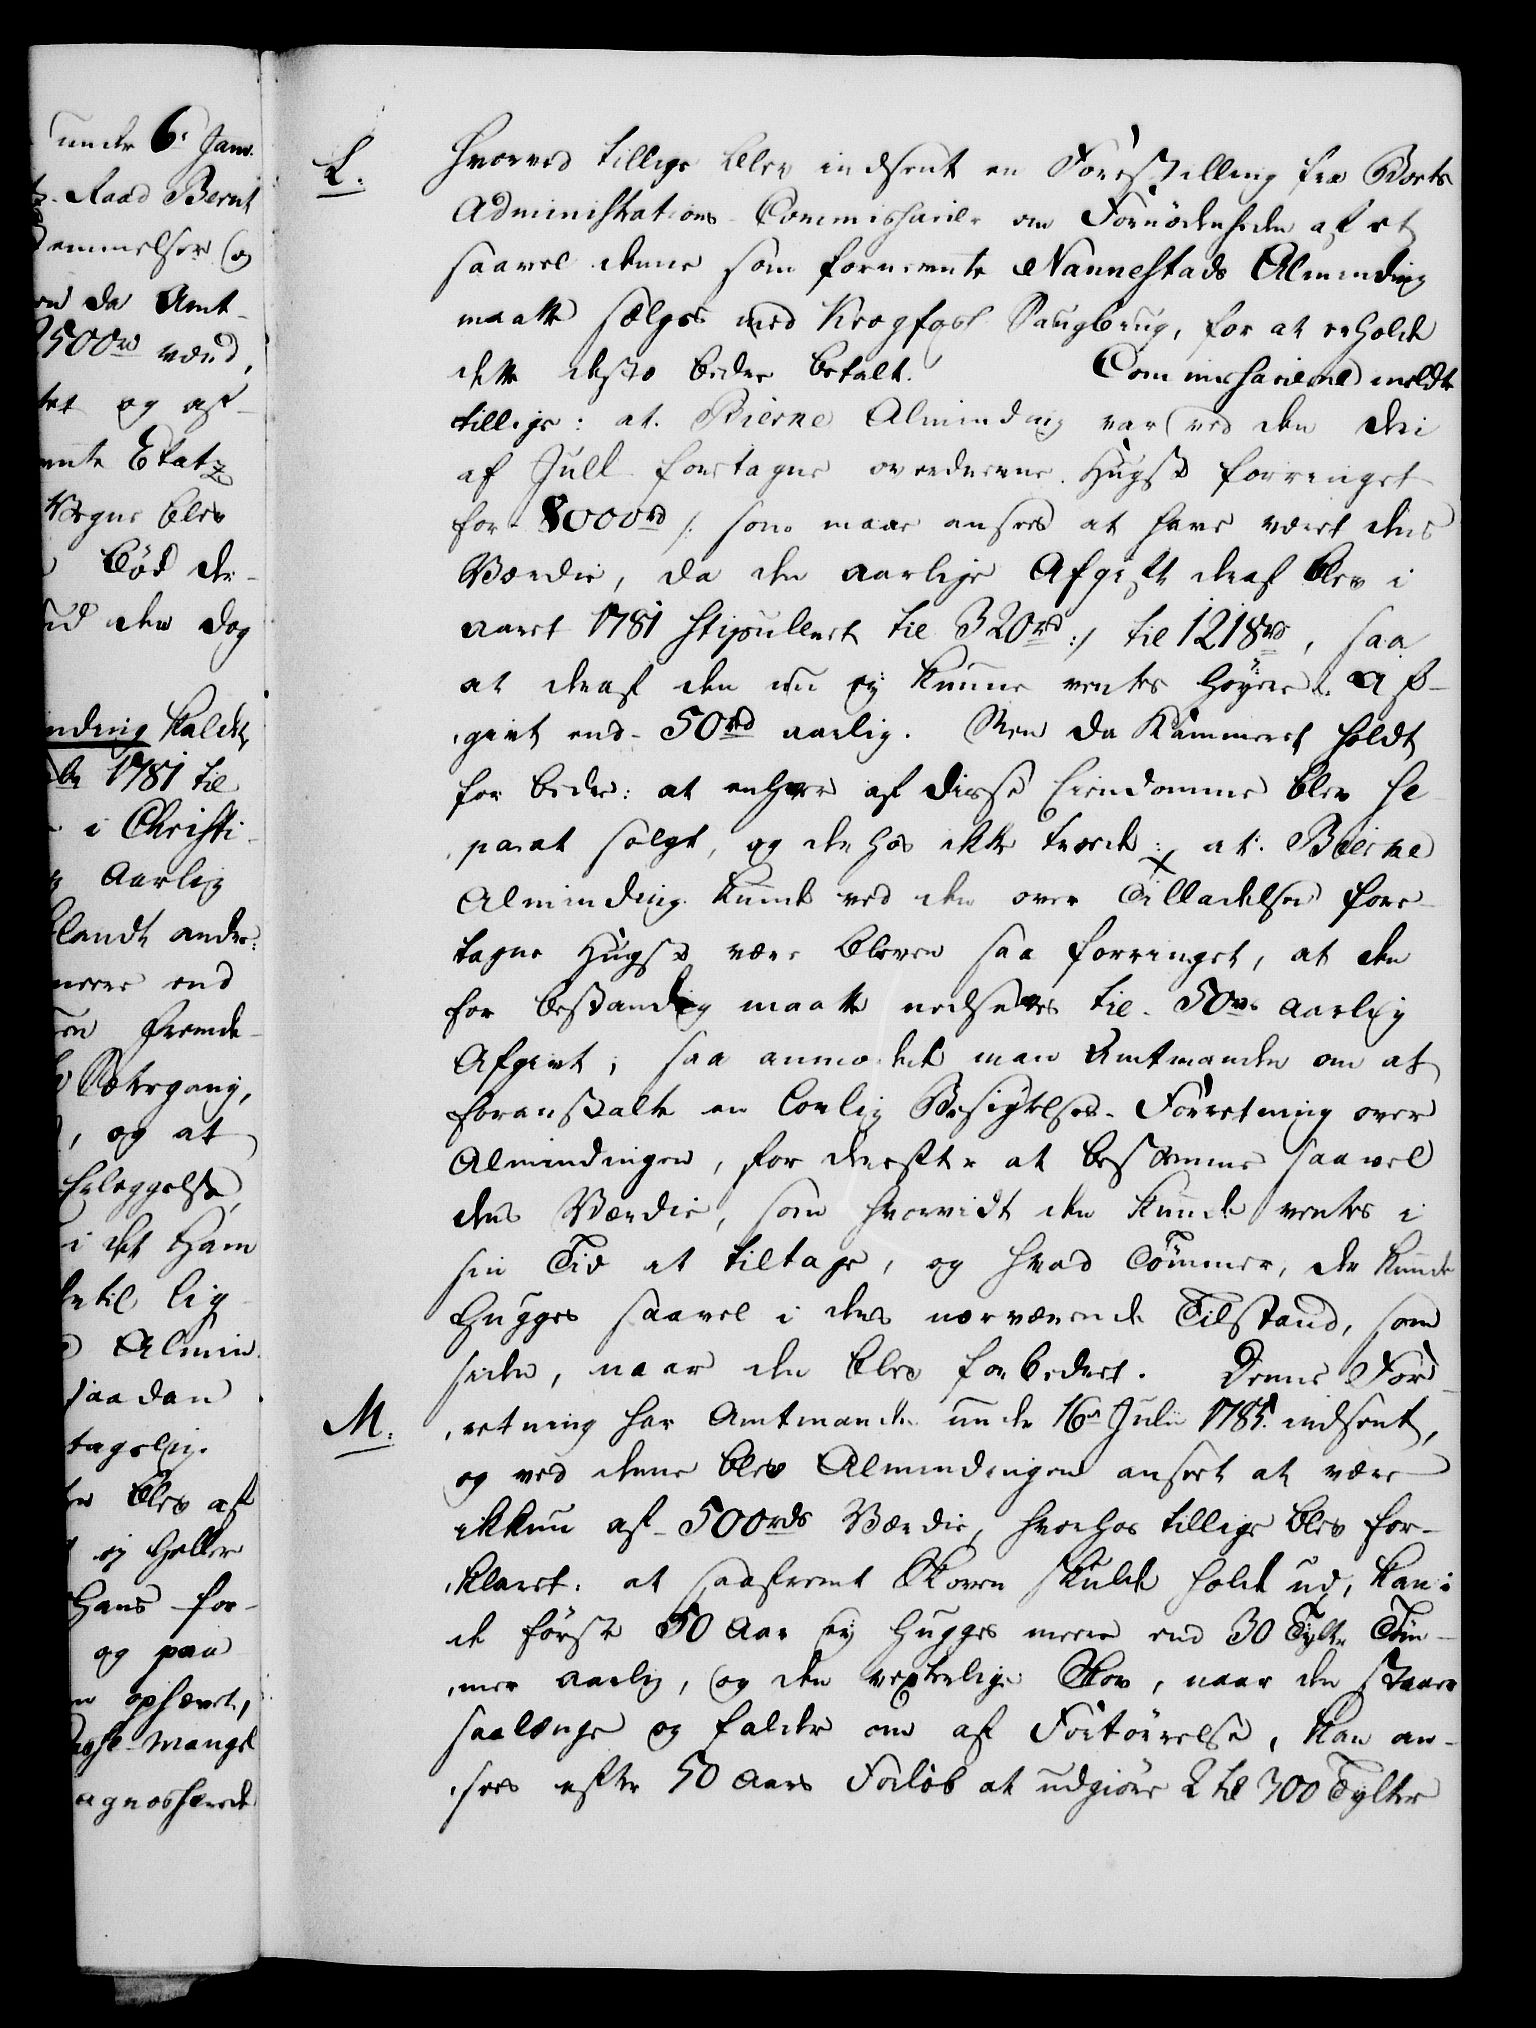 under 6. Janv.
Raad Bernt
emmelser og
da Amt-
2500rd værd,
tet og af-
Etatz
Vegne blev
Bød der-
den dog
nding kaldet,
1781 til
i Christi-
Aarlig
blandt andre:
meere end
fremde-
Sætergang,
, og at
Erlæggelse,
i det Ham
lig
Almin
saadan
blev af
ej heller
Hans for-
og paa
ophævet,
Mangel
L. hvorved tillige blev indsent en Forestilling fra Boets
Administrations-Commissairer om Fornödenheden af at
saavel denne som fornevnte Nannestads Alminding
maatte sælges med Krogfoss Saugbrug, for at erholde
dette desto bedre betalt. Commissairerne meldte
tillige: at Bierke Alminding var ved den der-
af Juel foretagne overdrevne Hugst forringet
for 8000rd /: som maae ansees at have været dens
Værdie, da den aarlige Afgift deraf blev i
aaret 1781 stipuleret til 320rd :/ til 1218rd, saa
at deraf den nu ej kunne ventes höyere Af-
givt end 50rd aarlig. Men da Kammeret holdt
for bedre: at enhver af disse Eiendomme blev se-
parat solgt, og derhos ikke troede: at Bierke
Alminding kunde ved den over Tilladelsen fore-
tagne Hugst være bleven saa forringet, at den
for bestandig maatte nedsættes til 50rd aarlig
Afgivt; saa anmodede man Amtmanden om at
foranstalte en lovlig Besigtelses-Forretning over
Almindingen, for derefter at bestemme saavel
dens Værdie, som hvorvidt den kunde ventes i
sin Tid at tiltage, og hvad Tömmer, der kunde
hugges saavel i dens nærværende Tilstand, som
siden, naar den blev forbedret. Denne For-
M. retning har Amtmanden under 16de Julii 1785 indsent,
og ved denne blev Almindingen anseet at være
ikkun af 500rds Værdie, hvorhos tillige blev for-
klaret: at saafremt Skoven skulde holde ud, kan i
de förste 50 Aar ej hugges meere end 30 Tylter Töm-
mer aarlig, og den vextelige Skov, naar den staaer
saalænge og falder om af Fortörrelse, kan an-
sees efter 50 Aars Forlöb at udgiöre 2 til 300 Tylter